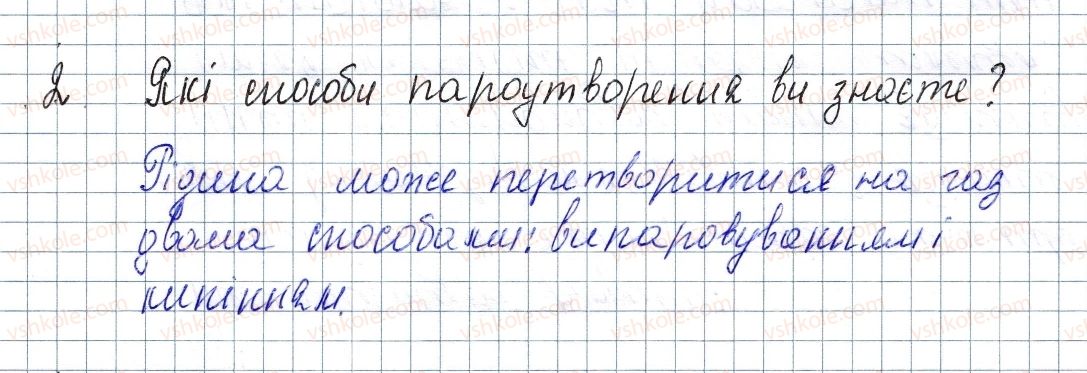 2 Які способи пароутворення ви знаєте?
Рідина може перетворитися на газ
двома способами: випаровуванням і
кипінням.